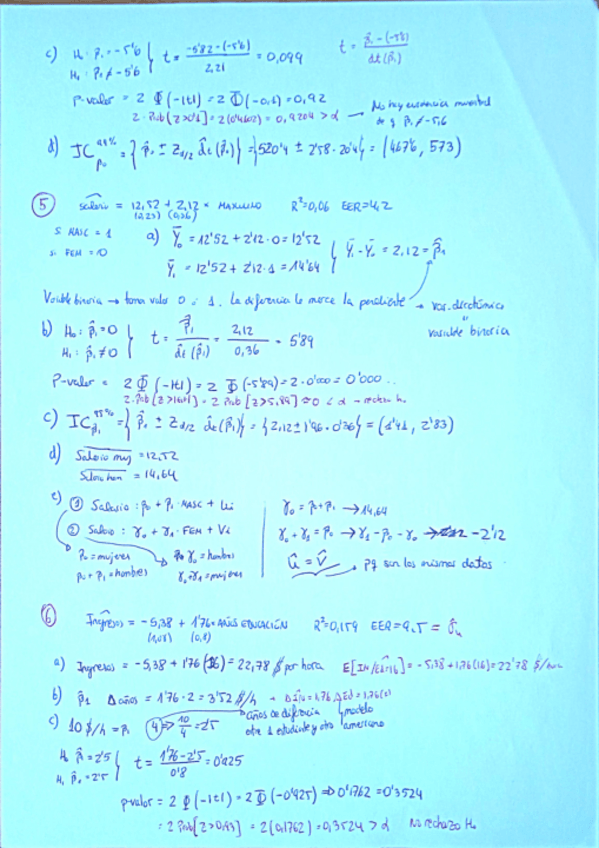 c) H₀: β₁ = -5'6
H₁: β₁ ≠ -5'6 } t = (-5'82 - (-5'6)) / 2,21 = 0,099
t = (β̂₁ - (-5'8)) / d̂t(β̂₁)
p-valor = 2 Φ(-|t|) = 2 Φ(-0,1) = 0,92
2·Prob[Z>0'1] = 2(0'4602) = 0,9204 > α → No hay evidencia muestral
de q β₁ ≠ -5,6
d) IC 99% β₀ = {β̂₀ ± Zα/2 d̂t(β̂₀)} = {520'4 ± 2'58·20'4} = (467'6, 573)
⑤ Salario = 12,52 + 2,12 × MASCULINO R²=0,06 EER=4,2
(0,23) (0,36)
Si MASC = 1
Si FEM = 0
a) Ȳ₀ = 12'52 + 2'12·0 = 12'52
Ȳ₁ = 12'52 + 2'12·1 = 14'64 } Ȳ₁ - Ȳ₀ = 2,12 = β̂₁
Variable binaria → toma valor 0 ó 1. La diferencia la marca la pendiente → var. dicotómica
=
variable binaria
b) H₀: β₁ = 0
H₁: β₁ ≠ 0 } t = β̂₁ / d̂t(β̂₁) = 2,12 / 0,36 = 5'89
P-valor = 2 Φ(-|t|) = 2 Φ(-5'89) = 2·0'000 = 0'000..
2·Prob[Z>|t|] = 2 Prob[Z>5,89] ≃ 0 < α → rechazo H₀
c) IC 95% β₁ = {β̂₁ ± Zα/2 d̂t(β̂₁)} = {2,12 ± 1'96·0'36} = (1'41, 2'83)
d) Salario muj = 12,52
Salario hom = 14,64
e) ① Salario = β₀ + β₁·MASC + Ui
② Salario = γ₀ + γ₁·FEM + Vi
β₀ = mujeres
β₀ + β₁ = hombres
γ₀ = hombres
γ₀ + γ₁ = mujeres
γ₀ = β₀ + β₁ → 14,64
γ₀ + γ₁ = β₀ → γ₁ = β₀ - γ₀ → -2'12
û = v̂ → pq son los mismos datos
⑥ Ingresos = -5,38 + 1'76 × AÑOS EDUCACIÓN R²=0,159 EER=9.5 = σ̂u
(1,08) (0,8)
a) Ingresos = -5,38 + 1'76(16) = 22,78 $ por hora E[IN/Ed=16] = -5'38 + 1,76(16) = 22'78 $/hora
b) β̂₁ Δaños = 1'76·2 = 3'52 $/h → ΔIN = 1,76 ΔEd = 1,76(2)
c) 10 $/h = β₁ ④ ⇒ 10/4 = 2'5
años de diferencia
entre 1 estudiante y otro
modelo
americano
H₀ β̂₁ = 2'5
H₁ β̂₁ = 2'5 } t = (1'76 - 2'5) / 0'8 = 0'925
p-valor = 2 Φ(-|t|) = 2 Φ(-0'925) ⇒ 0'1762 = 0'3524
= 2 Prob[Z>0,93] = 2(0,1762) = 0,3524 > α No rechazo H₀